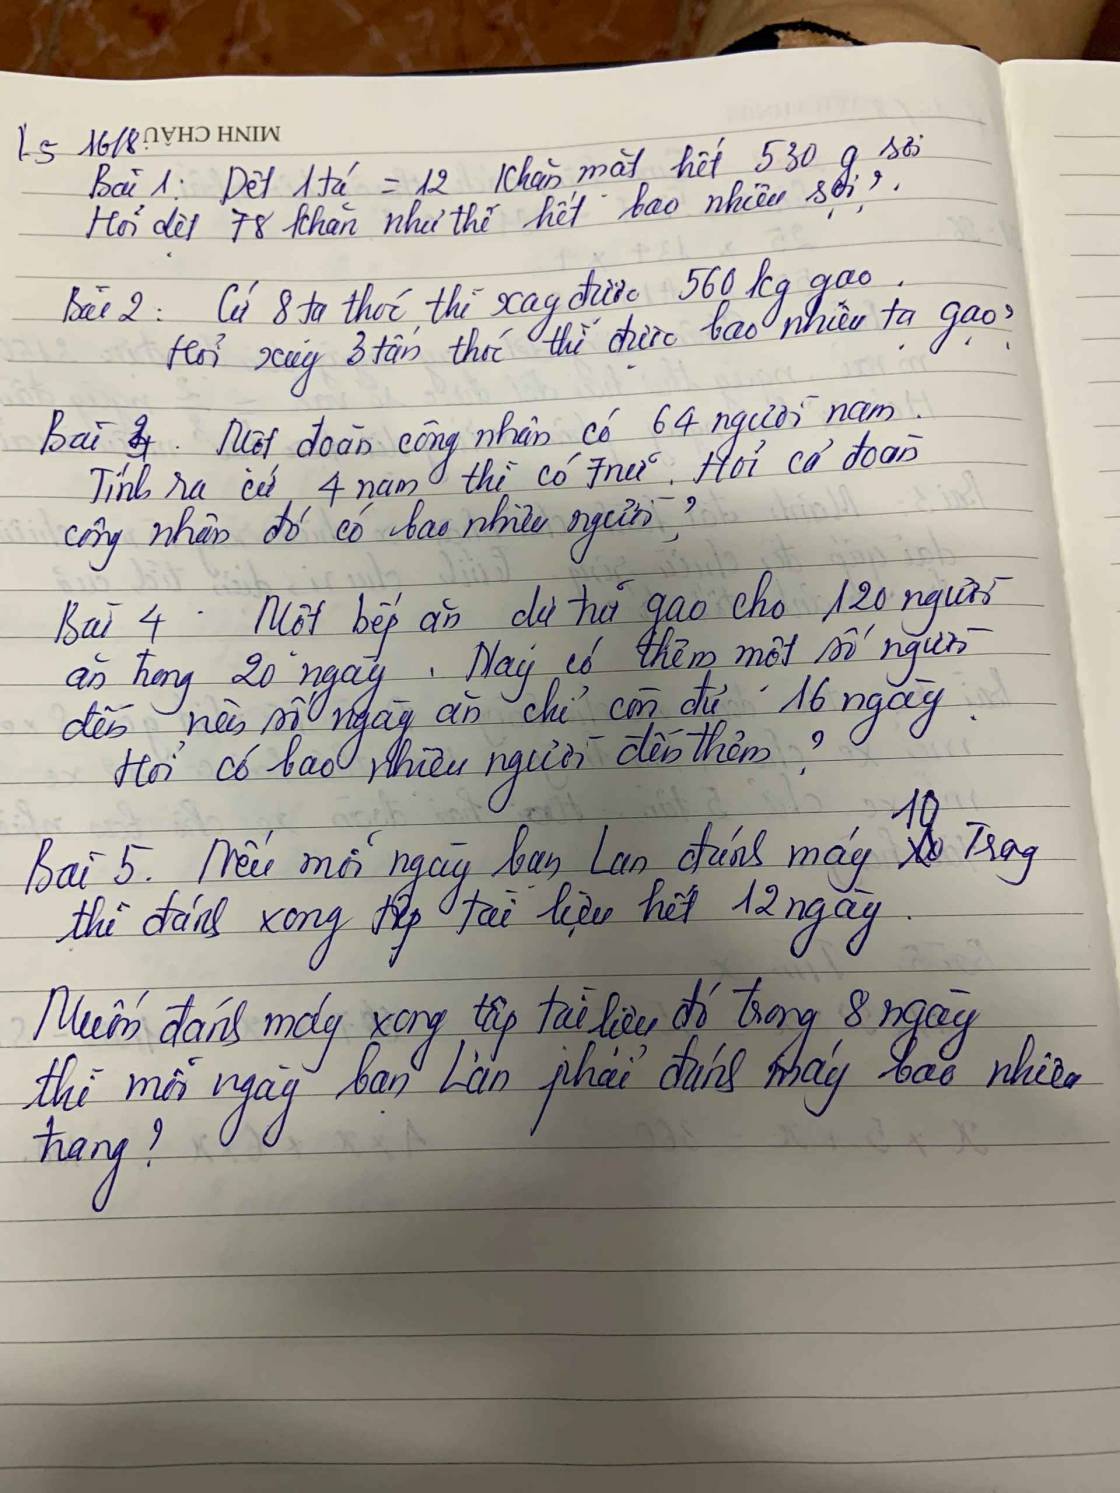 MINH CHÂU
L5 16/8
Bài 1: Dệt 1 tá = 12 khăn mặt hết 530 g sợi
Hỏi dệt 78 khăn như thế hết bao nhiêu sợi?
Bài 2: Cứ 8 tạ thóc thì xay được 560 kg gạo.
Hỏi xay 3 tấn thóc thì được bao nhiêu tạ gạo?
Bài 3. Một đoàn công nhân có 64 người nam.
Tính ra cứ 4 nam thì có 7 nữ. Hỏi cả đoàn
công nhân đó có bao nhiêu người?
Bài 4. Một bếp ăn dự trữ gạo cho 120 người
ăn trong 20 ngày. Nay có thêm một số người
đến nên số ngày ăn chỉ còn đủ 16 ngày.
Hỏi có bao nhiêu người đến thêm?
Bài 5. Nếu mỗi ngày bạn Lan đánh máy 10 Trag
thì đánh xong tập tài liệu hết 12 ngày.
Muốn đánh máy xong tập tài liệu đó trong 8 ngày
thì mỗi ngày bạn Lan phải đánh máy bao nhiêu
trang?